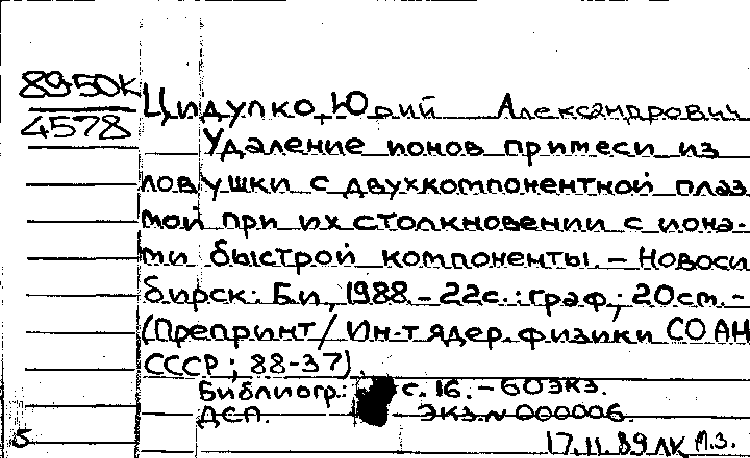 89-50К
4578
Цидулко, Юрий Александрович
Удаление ионов примеси из
ловушки с двухкомпонентной плаз
мой при их столкновении с иона-
ми быстрой компоненты. – Новоси
бирск: Б.и, 1988. – 22с.: граф.; 20см. –
(Препринт / Ин-т ядер. физики СО АН
СССР; 88-37).
Библиогр.: с. 16. – 60 экз.
ДСП. Экз. № 000006.
5 17.11.89 ЛК М.З.